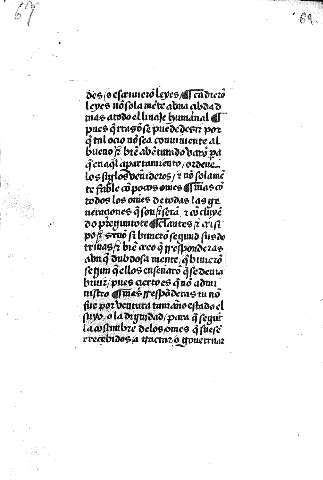 67
69
des / o escriuierõ leyes / ¶ E nõ dierõ
leyes nõ sola mẽte a vna cibdad
mas a todo el linaje humanal ¶
pues q̃ rrazõ se puede dezir por
q̃ tal ocio nõ sea conuiniente al
bueno &
biẽ abẽturado varõ pa
q̃ en aq̃l apartamiento / ordene
los siglos venideros / & nõ sola mẽ
te fable cõ pocos omes ¶ mas cõ
todos los omes de todas las ge
neraçiones q̃ son & serã & cõcluyẽ
do pregunto te ¶ cleantes & crisi
po & zenõ si biuierõ segund sus do
trinas / & biẽ creo q̃ rresponderas
a vn q̃ dubdosa mente / q̃ biuierõ
segun q̃ ellos enseñarõ q̃ se deuia
biuir / pues cierto es q̃ nõ admi
nistro ¶ mas rrespõderas tu nõ
fue por ventura tamaño estado el
suyo / o la dignidad / para q̃ segũt
la costunbre de los omes q̃ fuesẽ
rrecebidos a tractar o gouernar